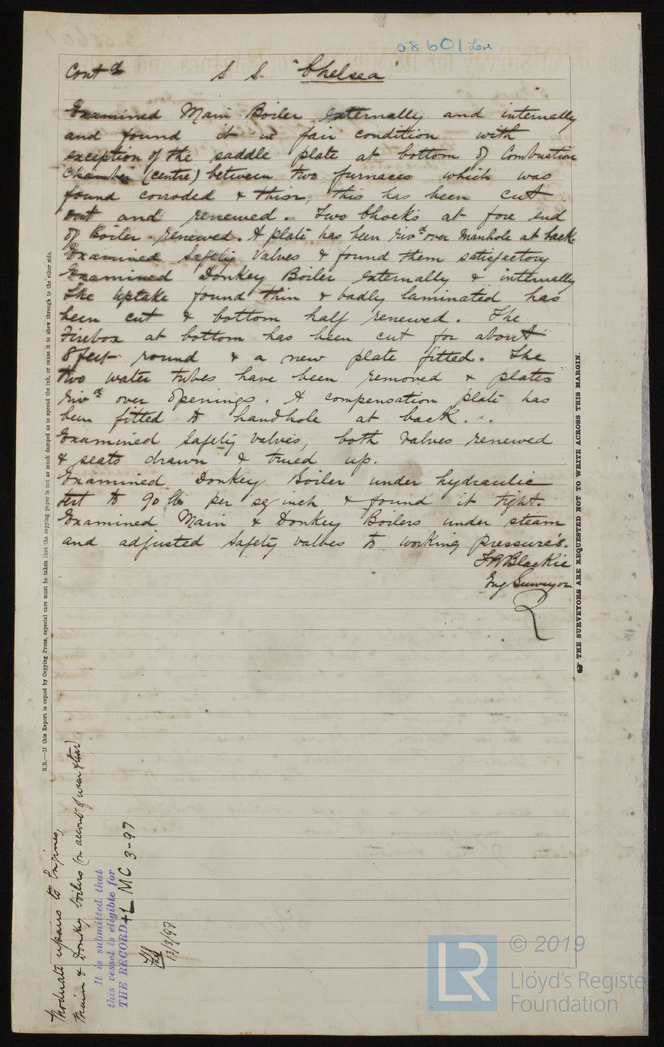 58601 Lon
Contd S S. "Chelsea"
Examined Main Boiler externally and internally
and found it in fair condition with
exception of the saddle plate at bottom of Combustion
Chamber (centre) between two furnaces which was
found corroded & thin, this has been cut
out and renewed. Two chocks at fore end
of Boiler renewed. A plate has been rivd over manhole at back
Examined Safety Valves & found them satisfactory
Examined Donkey Boiler externally & internally
The uptake found thin & badly laminated has
been cut & bottom half renewed. The
Firebox at bottom has been cut for about
8 feet round & a new plate fitted. The
two water tubes have been removed & plates
rivd over openings. A compensation plate has
been fitted to handhole at back.
Examined Safety valves, both valves renewed
& seats drawn & trued up.
Examined Donkey Boiler under hydraulic
test to 90 lb per sq inch & found it tight.
Examined Main & Donkey Boilers under steam
and adjusted safety valves to working pressures.
Blackie
Eng Surveyor
R
N.B.—If this Report is copied by Copying Press, especial care must be taken that the copying paper is not so much damped as to spread the ink, or cause it to show through to the other side.
THE SURVEYORS ARE REQUESTED NOT TO WRITE ACROSS THIS MARGIN.
Moderate repairs to Engines,
main & Donkey boilers (on account of wear & tear)
It is submitted that
this vessel is eligible for
THE RECORD + L MC 3-97
LR
© 2019
Lloyd's Register
Foundation